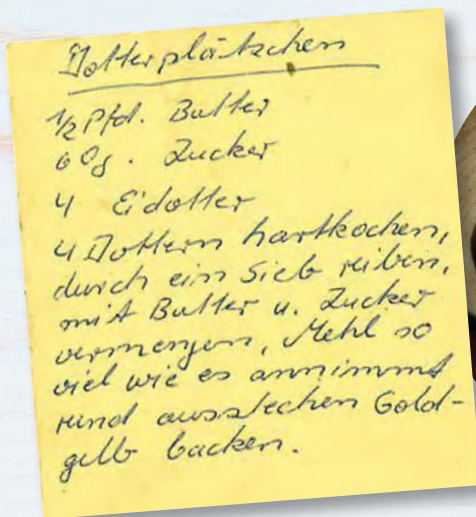 Dotterplätzchen
1/2 Pfd. Butter
60g. Zucker
4 Eidotter
4 Dottern hartkochen,
durch ein Sieb reiben,
mit Butter u. Zucker
vermengen, Mehl so
viel wie es annimmt
rund ausstechen Gold-
gelb backen.